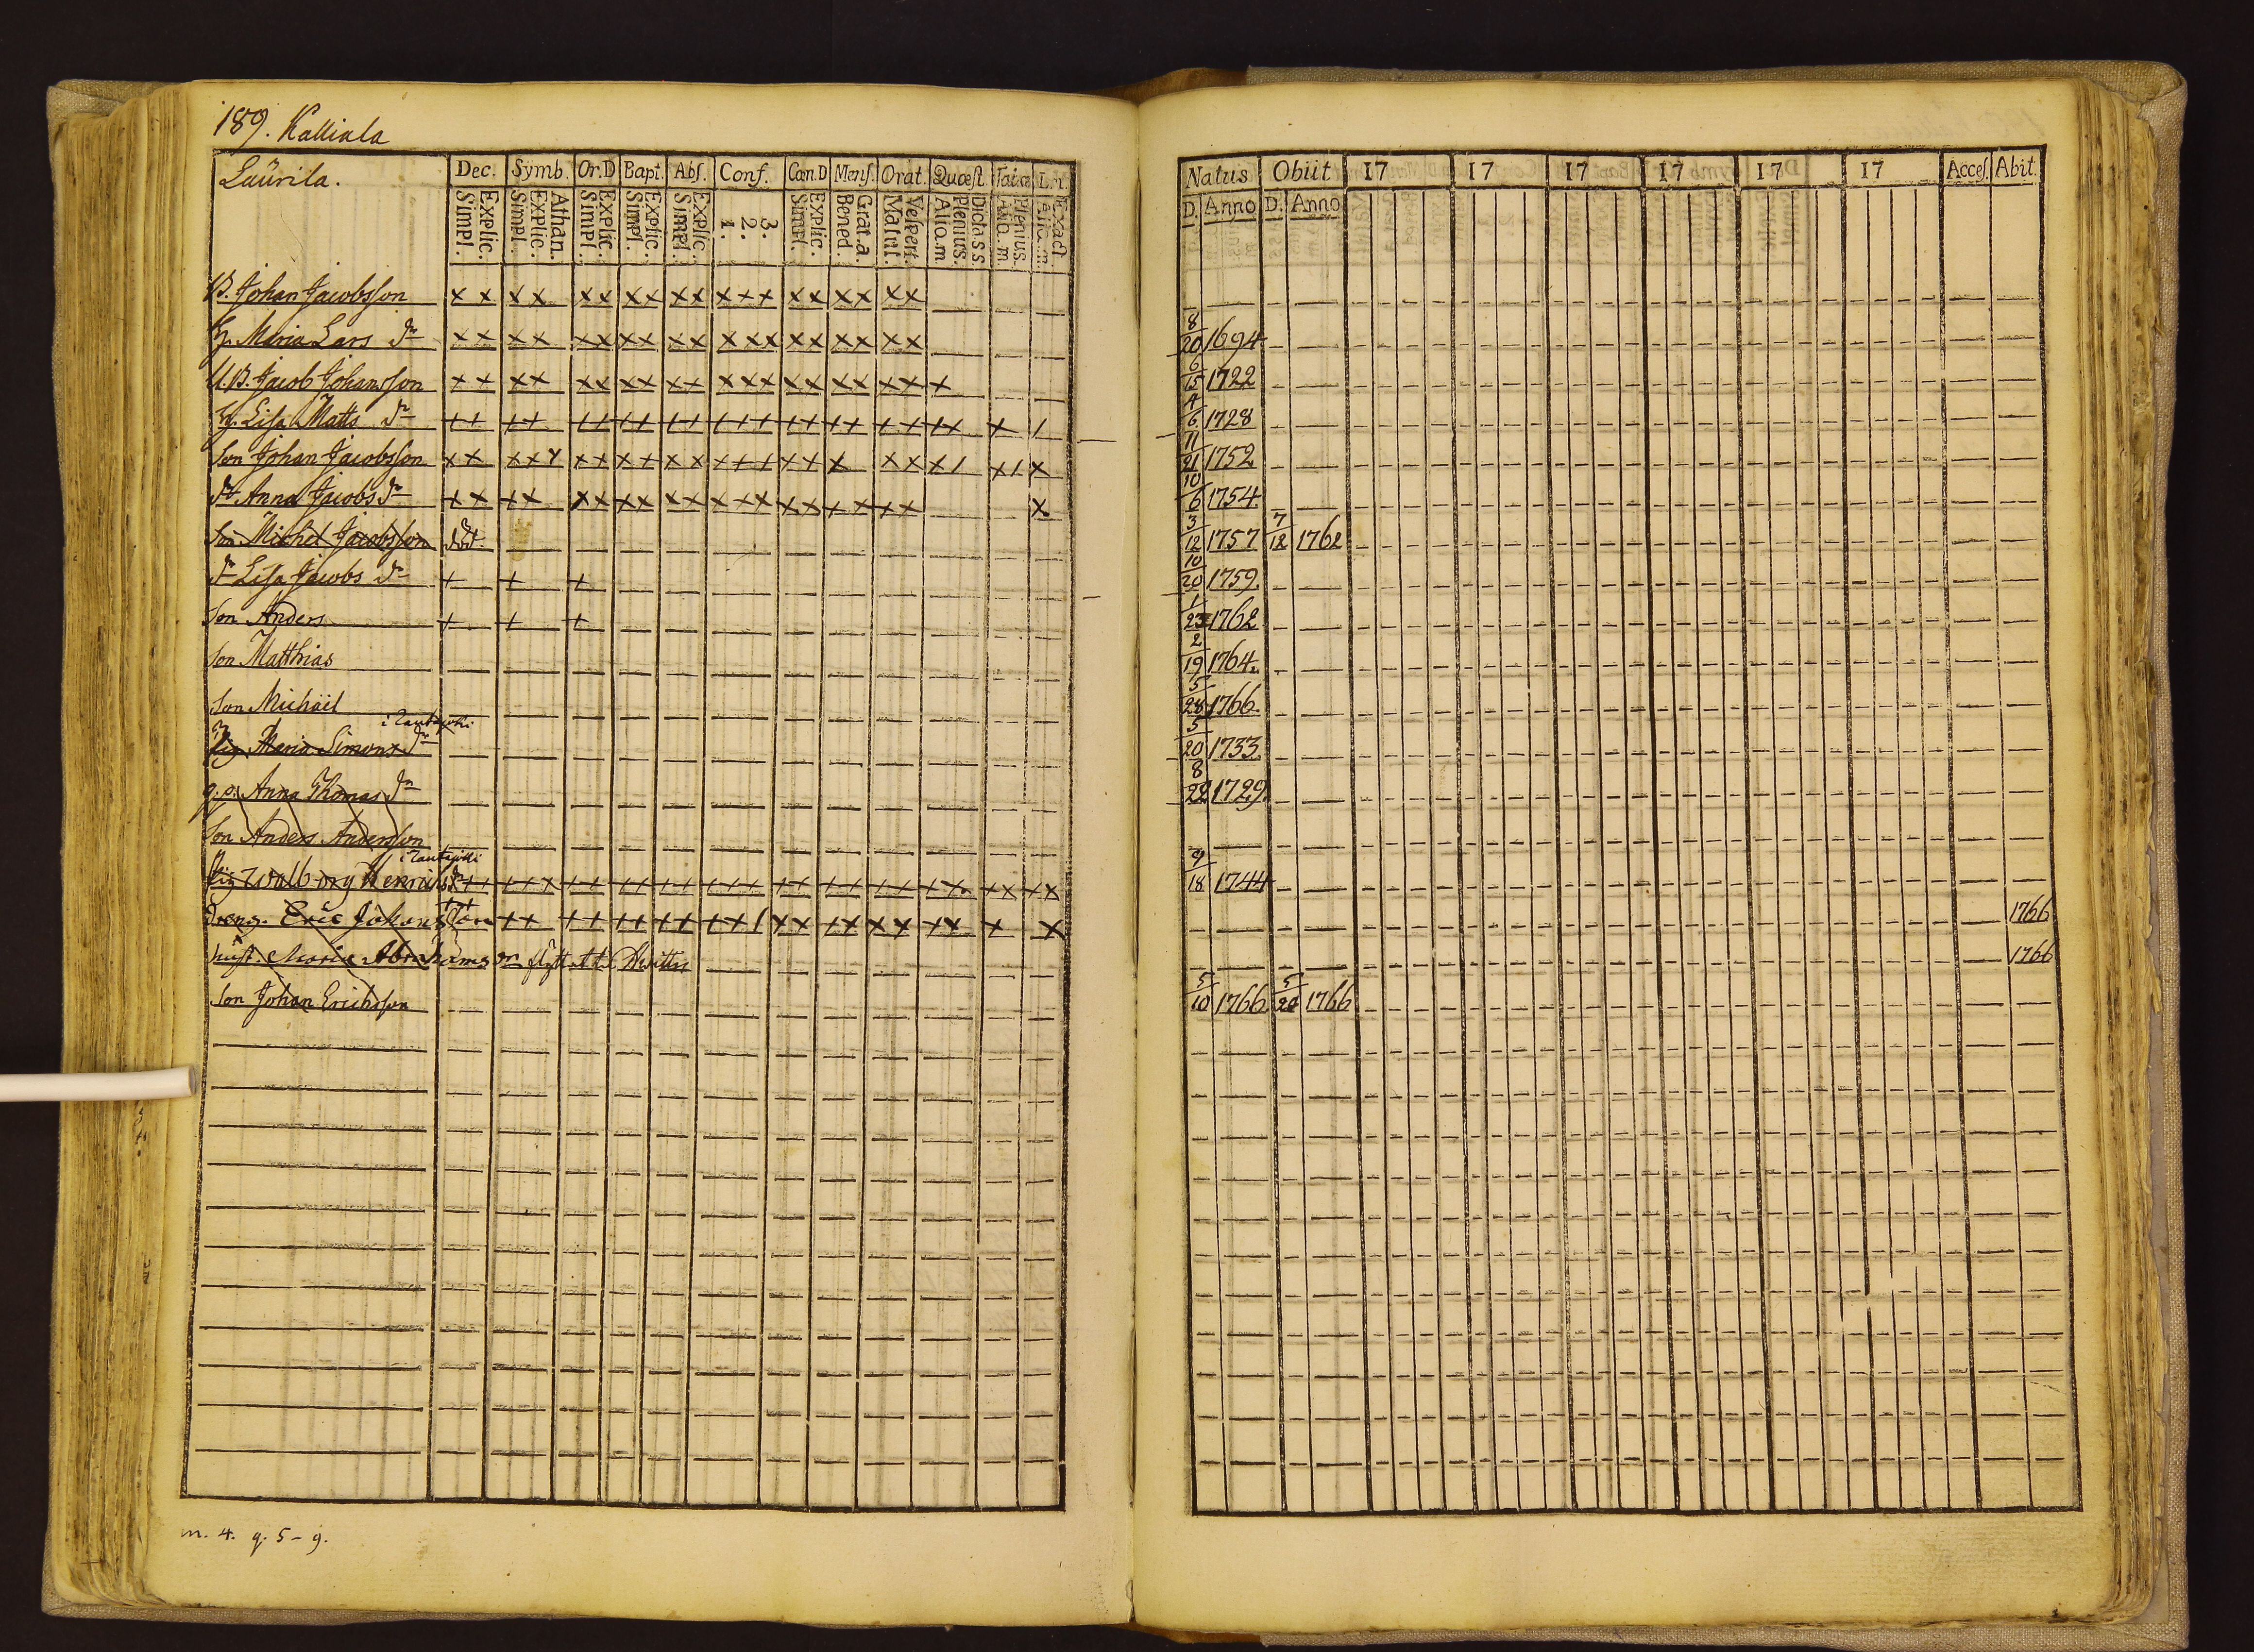 189. Kalliala
Laurila.
Dec. Symb. Or.D Bapt. Abs. Conf. Cœn.D Mens. Orat. Quæst. L.n.
Explic. Simpl. Athan. Explic. Simpl. Explic. Simpl. Explic. Simpl. Explic. Simpl. 3. 2. 1. Explic. Simpl. Grat.a. Bened. Vespert. Matut. Dicta s.s. Plenius. Alio.m Plenius. Exact.
B. Johan Jacobsson x x x x x x x x x x x x x x x x x x x
H. Maria Lars dr x x x x x x x x x x x x x x x x x x x
U.B. Jacob Johansson x x x x x x x x x x x x x x x x x x x x
H. Lisa Matts dr
Son Johan Jacobsson
dr Anna Jacobs dr
Son Michel Jacobsson död.
dr Lisa Jacobs dr + + +
Son Anders + + +
Son Matthias
Son Michaël
Pig Maria Simons dr
q.p. Anna Thomas dr
Son Anders Andersson
Pig Walborg Henrics dr
Dreng. Eric Johansson
hust. Maria Abrahams dr flytt at
Son Johan Erichsson
m. 4. q. 5 - 9.
Natus Obiit 17 17 17 17 17 17 Acces. Abit.
D. Anno D. Anno
8/20 1694
6/15 1722
4/6 1728
11/21 1752
10/6 1754
3/12 1757 7/12 1762
10/20 1759.
1/23 1762
2/19 1764.
5/28 1766
5/20 1733
8/22 1729
9/18 1744
1766
1766
5/10 1766 5/20 1766